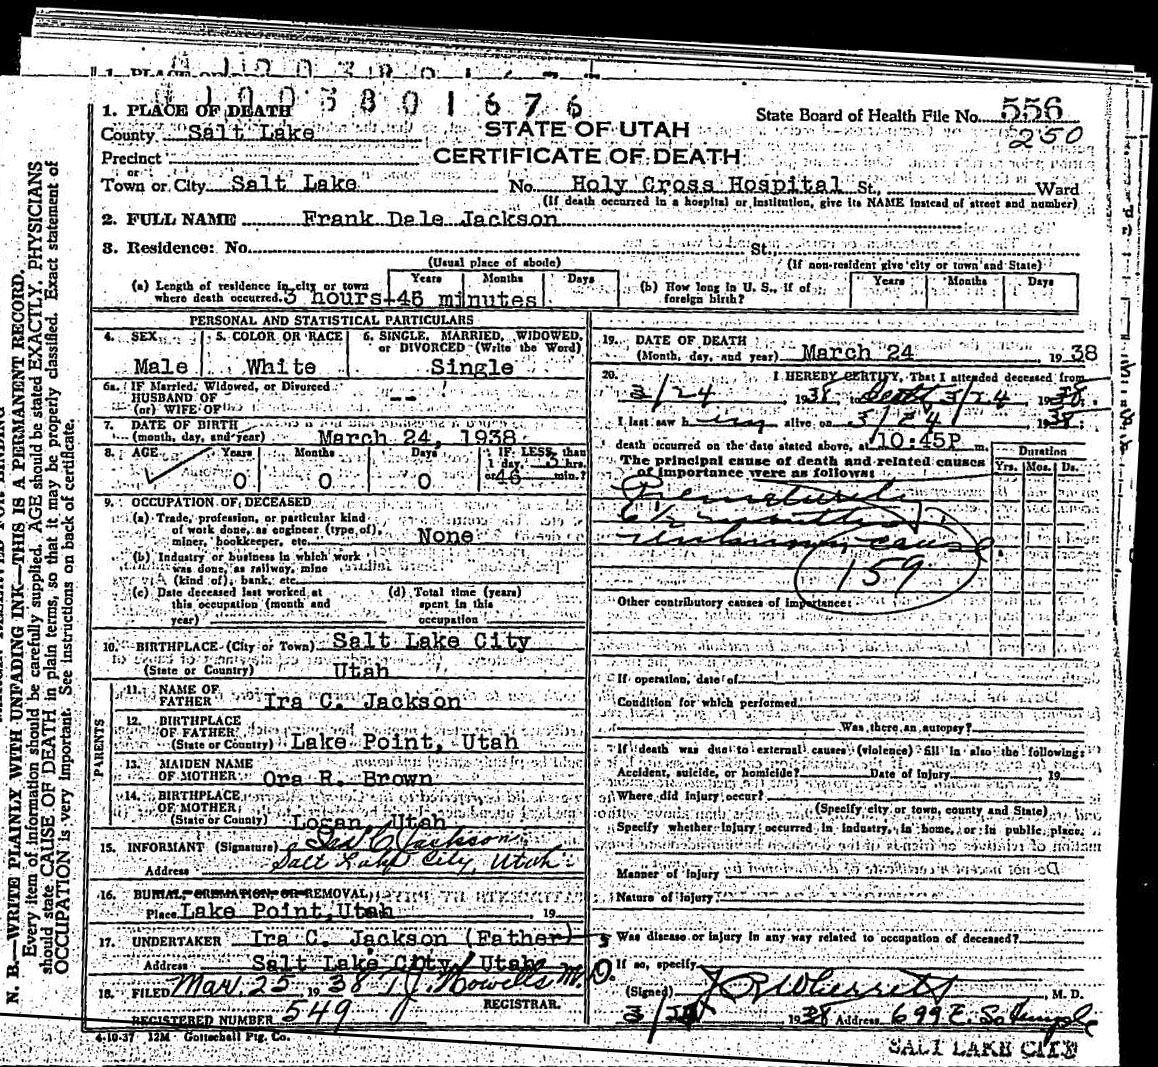 1003801676
1. PLACE OF DEATH
County Salt Lake
STATE OF UTAH
CERTIFICATE OF DEATH
State Board of Health File No. 556
250
Precinct
or
Town or City Salt Lake No. Holy Cross Hospital St., Ward
(If death occurred in a hospital or institution, give its NAME instead of street and number)
2. FULL NAME Frank Dale Jackson
3. Residence: No. St.
(Usual place of abode) (If non-resident give city or town and State)
(a) Length of residence in city or town where death occurred. 3 hours-45 minutes
Years Months Days
(b) How long in U. S., if of foreign birth?
Years Months Days
PERSONAL AND STATISTICAL PARTICULARS
4. SEX Male
5. COLOR OR RACE White
6. SINGLE, MARRIED, WIDOWED, or DIVORCED (Write the Word) Single
6a. If Married, Widowed, or Divorced
HUSBAND OF
(or) WIFE OF --
7. DATE OF BIRTH
(month, day, and year) March 24, 1938
8. AGE Years 0 Months 0 Days 0 IF LESS than 1 day, 3 hrs. or 45 min.?
9. OCCUPATION OF DECEASED
(a) Trade, profession, or particular kind of work done, as engineer (type of), miner, bookkeeper, etc. None
(b) Industry or business in which work was done, as railway, mine (kind of), bank, etc.
(c) Date deceased last worked at this occupation (month and year)
(d) Total time (years) spent in this occupation
10. BIRTHPLACE (City or Town) Salt Lake City
(State or Country) Utah
PARENTS
11. NAME OF FATHER Ira C. Jackson
12. BIRTHPLACE OF FATHER
(State or County) Lake Point, Utah
13. MAIDEN NAME OF MOTHER Ora R. Brown
14. BIRTHPLACE OF MOTHER
(State or County) Logan, Utah
15. INFORMANT (Signature) Ira C Jackson
Address Salt Lake City, Utah
16. BURIAL, CREMATION, OR REMOVAL
Place Lake Point, Utah 19
17. UNDERTAKER Ira C. Jackson (Father)
Address Salt Lake City, Utah
18. FILED Mar. 25 1938 T. J. Howells M.D.
REGISTRAR.
REGISTERED NUMBER 549
4-10-37 12M Gottschall Ptg. Co.
19. DATE OF DEATH
(Month, day, and year) March 24 1938
20. I HEREBY CERTIFY, That I attended deceased from
3/24, 1938, to Death 3/24, 1938.
I last saw him alive on 3/24 1938;
death occurred on the date stated above, at 10:45P m.
The principal cause of death and related causes of importance were as follows:
Duration
Yrs. Mos. Ds.
Prematurity
unknown cause
159
Other contributory causes of importance:
If operation, date of
Condition for which performed
Was there an autopsy?
If death was due to external causes (violence) fill in also the following:
Accident, suicide, or homicide? Date of injury 19
Where did injury occur?
(Specify city or town, county and State)
Specify whether injury occurred in industry, in home, or in public place.
Manner of injury
Nature of injury
Was disease or injury in any way related to occupation of deceased?
If so, specify
(Signed) , M. D.
1938 Address 699 E. So Temple
SALT LAKE CITY
N. B.—WRITE PLAINLY WITH UNFADING INK—THIS IS A PERMANENT RECORD.
Every item of information should be carefully supplied. AGE should be stated EXACTLY. PHYSICIANS
should state CAUSE OF DEATH in plain terms, so that it may be properly classified. Exact statement of
OCCUPATION is very important. See instructions on back of certificate.